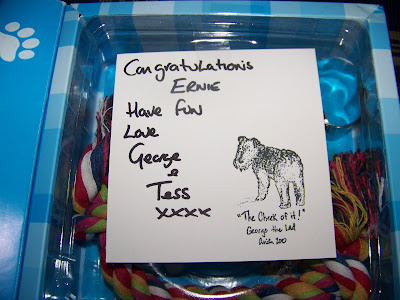 Congratulations
ERNIE
Have fun
Love
George
&
Tess
xxxx
"The Cheek of it!"
George the Lad